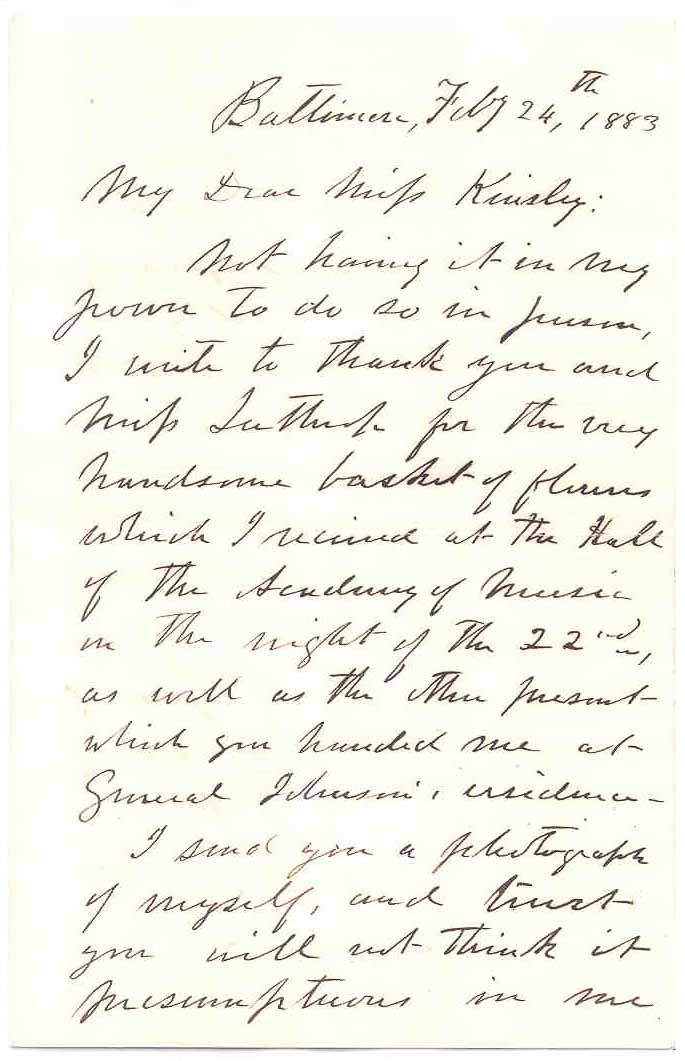 Baltimore, Feby 24th, 1883
My Dear Miss Kinsley:
Not having it in my
power to do so in person,
I write to thank you and
Miss for the very
handsome basket of flowers
which I received at the Hall
of the Academy of Music
on the night of the 22nd,
as well as the other present
which you handed me at
General Johnson's residence -
I send you a photograph
of myself, and trust
you will not think it
presumptuous in me